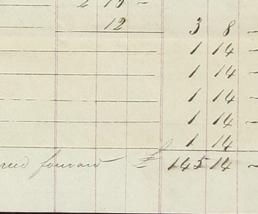 12 3 8 -
1 14 -
1 14 -
1 14 -
1 14 -
1 14
forward £ 145 14 -